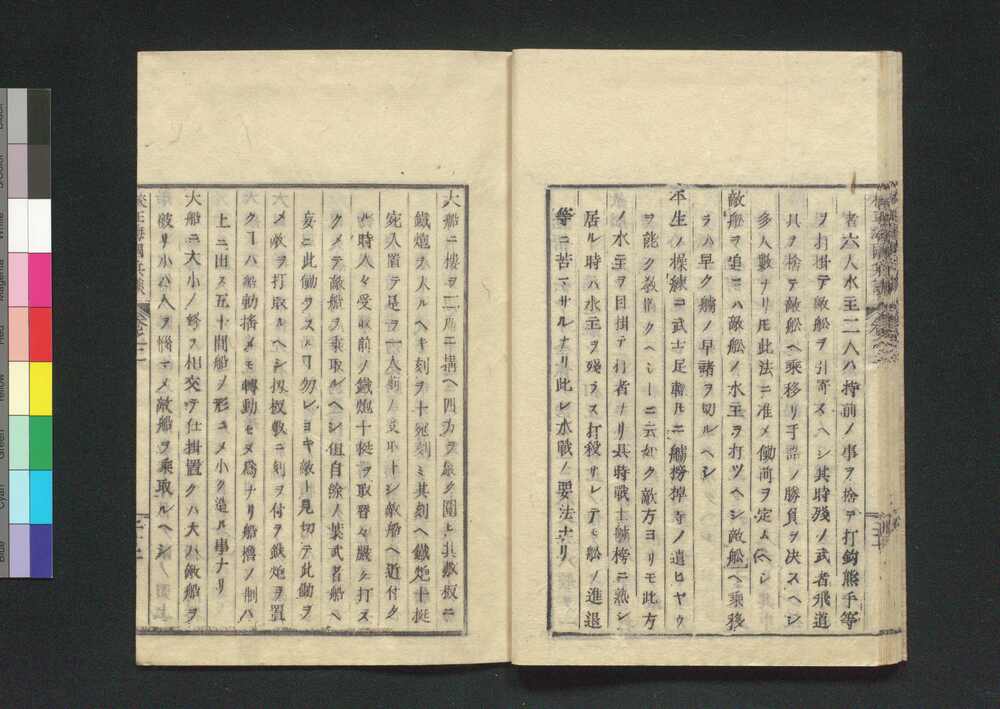 者六人水主二人ハ持前ノ事ヲ捨テ打鈎熊手等
ヲ打掛テ敵舩ヲ引寄スヘシ其時殘ノ武者飛道
具ヲ捨テ敵舩ヘ乗移リ手詰ノ勝負ヲ决スヘシ
多人數ナリ𪜈此法ニ准メ働前ヲ定ムヘシ
敵舩ヲ追ニハ敵舩ノ水主ヲ打ツヘシ敵舩ヘ乗移
ラハ早ク艫ノ早諸ヲ切ルヘシ
平生ノ操練ニ武士足軽ルニ艫榜棹等ノ遣ヒヤウ
ヲ能ク敎置クヘシ一ニ云如ク敵方ヨリモ此方
ノ水主ヲ目掛テ打者ナリ其時戰士艫榜ニ熟シ
居ル時ハ水主ヲ殘ラス打殺サレテモ舩ノ進退
等ニ苦マサルナリ此レ水戰ノ要法ナリ
大船ニ樓ヲ二層ニ構ヘ四方ヲ嚴ク圍ヒ其敷板ニ
鐵炮ヲ入ルヘキ刻ヲ十宛刻ミ其刻ヘ鐵炮十挺
宛入置テ是ヲ一人前ノ受取トシ敵船ヘ近付ク
ル時人々受取前ノ鐵炮十挺ヲ取替々嚴ク打ス
クメテ敵船ヲ乗取ルヘシ但自餘ノ葉武者船ヘ
妄ニ此働ヲスルヿ勿レヨキ敵ト見切テ此働ヲ
メ敵ヲ打取ルヘシ扨板敷ニ刻ヲ付ヲ鉄炮ヲ置
クヿハ船動揺メモ轉動セヌ爲ナリ船櫓ノ制ハ
上ニ出ス五十間船ノ形ニメ小ク造ル事ナリ
大船ニ大小ノ蜂ヲ相交テ仕掛置ク大ハ敵船ヲ
破リ小ハ人ヲ悩マメ敵船ヲ乗取ルヘシ